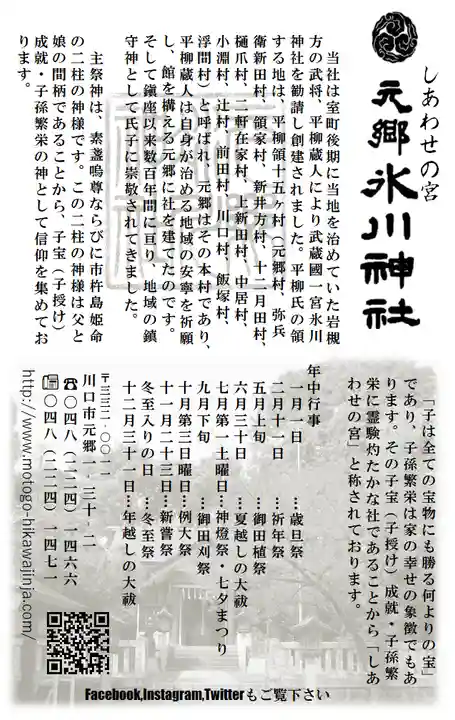 しあわせの宮
元郷氷川神社
当社は室町後期に当地を治めていた岩槻
方の武将、平柳蔵人により武蔵國一宮氷川
神社を勧請し創建されました。平柳氏の領
する地は、平柳領十五ヶ村(元郷村、弥兵
衛新田村、領家村、新井方村、十二月田村、
樋爪村、二軒在家村、上新田村、中居村、
小淵村、辻村、前田村、川口村、飯塚村、
浮間村)と呼ばれ、元郷はその本村であり、
平柳蔵人は自身が治める地域の安寧を祈願
し、館を構える元郷に社を建てたのです。
そして鎮座以来数百年間に亘り、地域の鎮
守神として氏子に崇敬されてきました。
主祭神は、素盞嗚尊ならびに市杵島姫命
の二柱の神様です。この二柱の神様は父と
娘の間柄であることから、子宝(子授け)
成就・子孫繁栄の神として信仰を集めてお
ります。
「子は全ての宝物にも勝る何よりの宝」
であり、子孫繁栄は家の幸せの象徴でもあ
ります。その子宝(子授け)成就・子孫繁
栄に霊験灼たかな社であることから「しあ
わせの宮」と称されております。
年中行事
一月一日 …歳旦祭
二月十一日 …祈年祭
五月上旬 …御田植祭
六月三十日 …夏越しの大祓
七月第一土曜日…神燈祭・七夕まつり
九月下旬 …御田刈祭
十月第三日曜日…例大祭
十一月二十三日…新嘗祭
冬至入りの日 …冬至祭
十二月三十一日…年越しの大祓
〒三三二-〇〇一一
川口市元郷一-三十-二
☎〇四八(二二四)一四六六
〇四八(二二四)一四七一
http://www.motogo-hikawajinja.com/
Facebook,Instagram,Twitterもご覧下さい